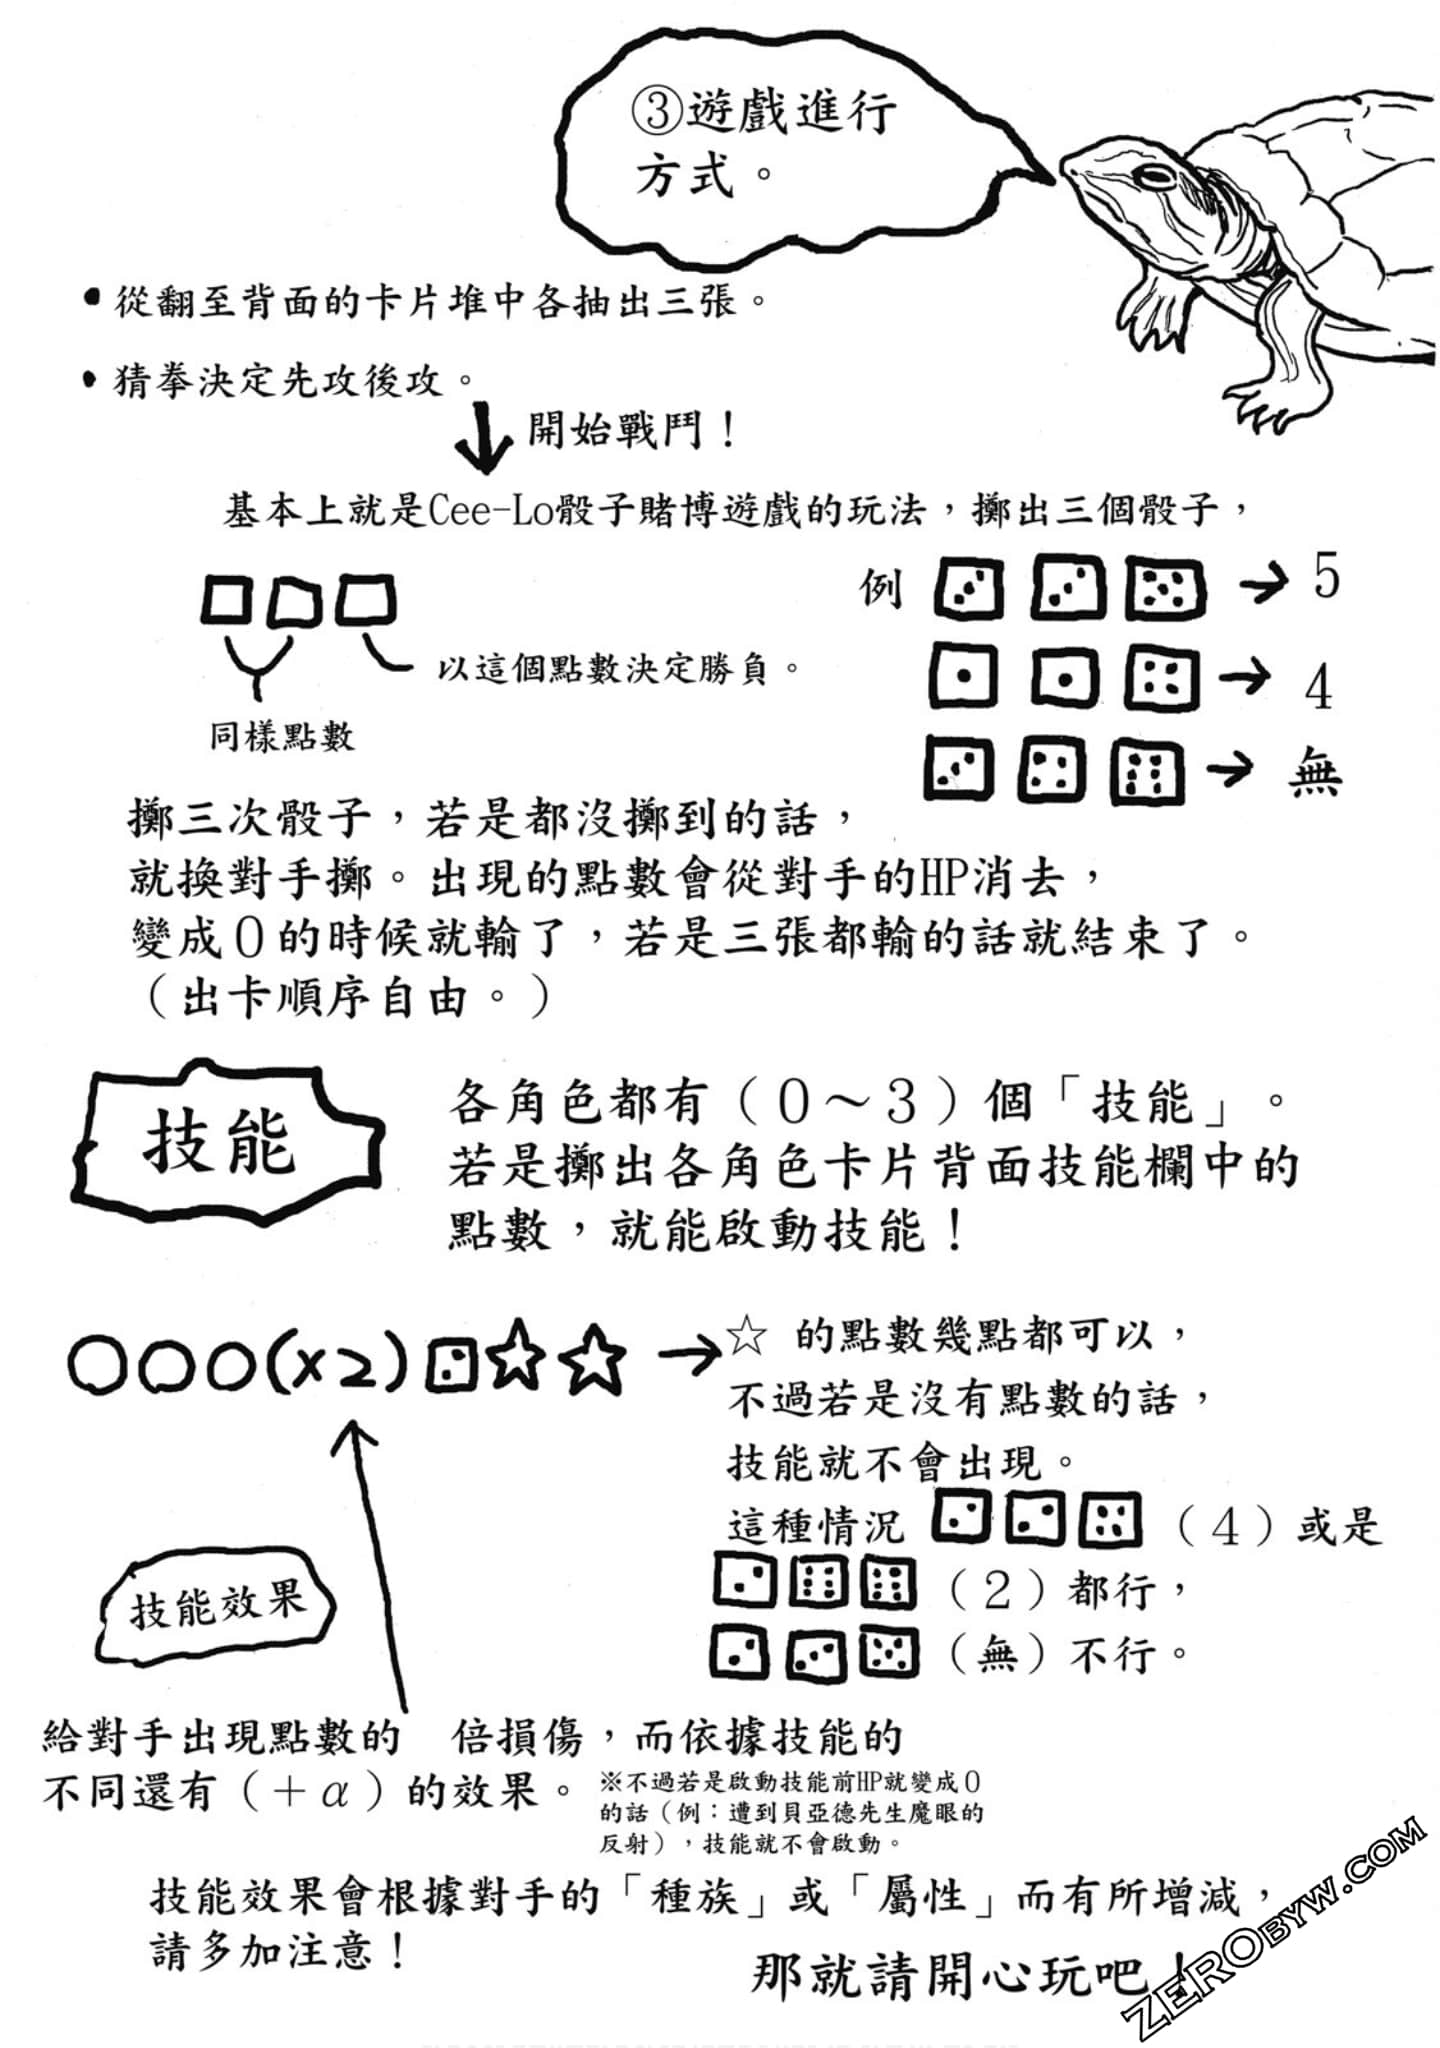 ③遊戲進行
方式。
•從翻至背面的卡片堆中各抽出三張。
•猜拳決定先攻後攻。
開始戰鬥！
基本上就是Cee-Lo骰子賭博遊戲的玩法，擲出三個骰子，
例 → 5
以這個點數決定勝負。
→ 4
同樣點數
→ 無
擲三次骰子，若是都沒擲到的話，
就換對手擲。出現的點數會從對手的HP消去，
變成０的時候就輸了，若是三張都輸的話就結束了。
（出卡順序自由。）
技能
各角色都有（０～３）個「技能」。
若是擲出各角色卡片背面技能欄中的
點數，就能啟動技能！
○○○(×2)☆☆→☆ 的點數幾點都可以，
不過若是沒有點數的話，
技能就不會出現。
這種情況（４）或是
（２）都行，
（無）不行。
技能效果
給對手出現點數的　倍損傷，而依據技能的
不同還有（＋α）的效果。
※不過若是啟動技能前HP就變成０
的話（例：遭到貝亞德先生魔眼的
反射），技能就不會啟動。
技能效果會根據對手的「種族」或「屬性」而有所增減，
請多加注意！
那就請開心玩吧！
ZEROBYW.COM